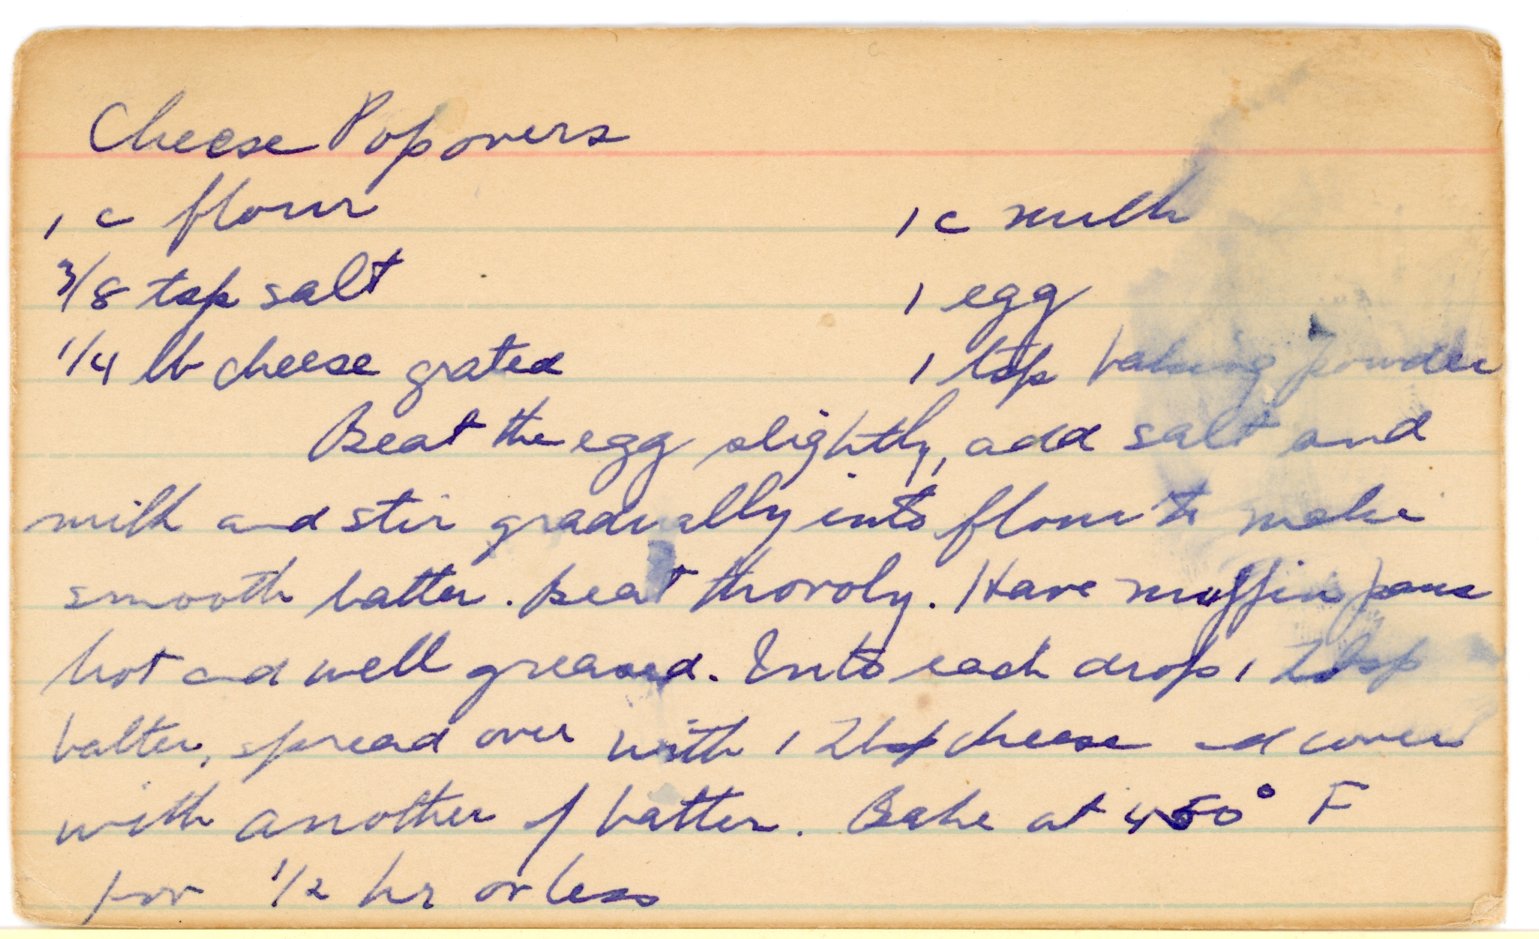 Cheese Popovers
1 c flour 1 c milk
3/8 tsp salt 1 egg
1/4 lb cheese grated 1 tsp baking powder
Beat the egg slightly, add salt and
milk and stir gradually into flour to make
smooth batter. Beat thoroly. Have muffin pans
hot and well greased. Into each drop 1 Tbsp
batter, spread over with 1 Tbsp cheese and cover
with another of batter. Bake at 450° F
for 1/2 hr or less